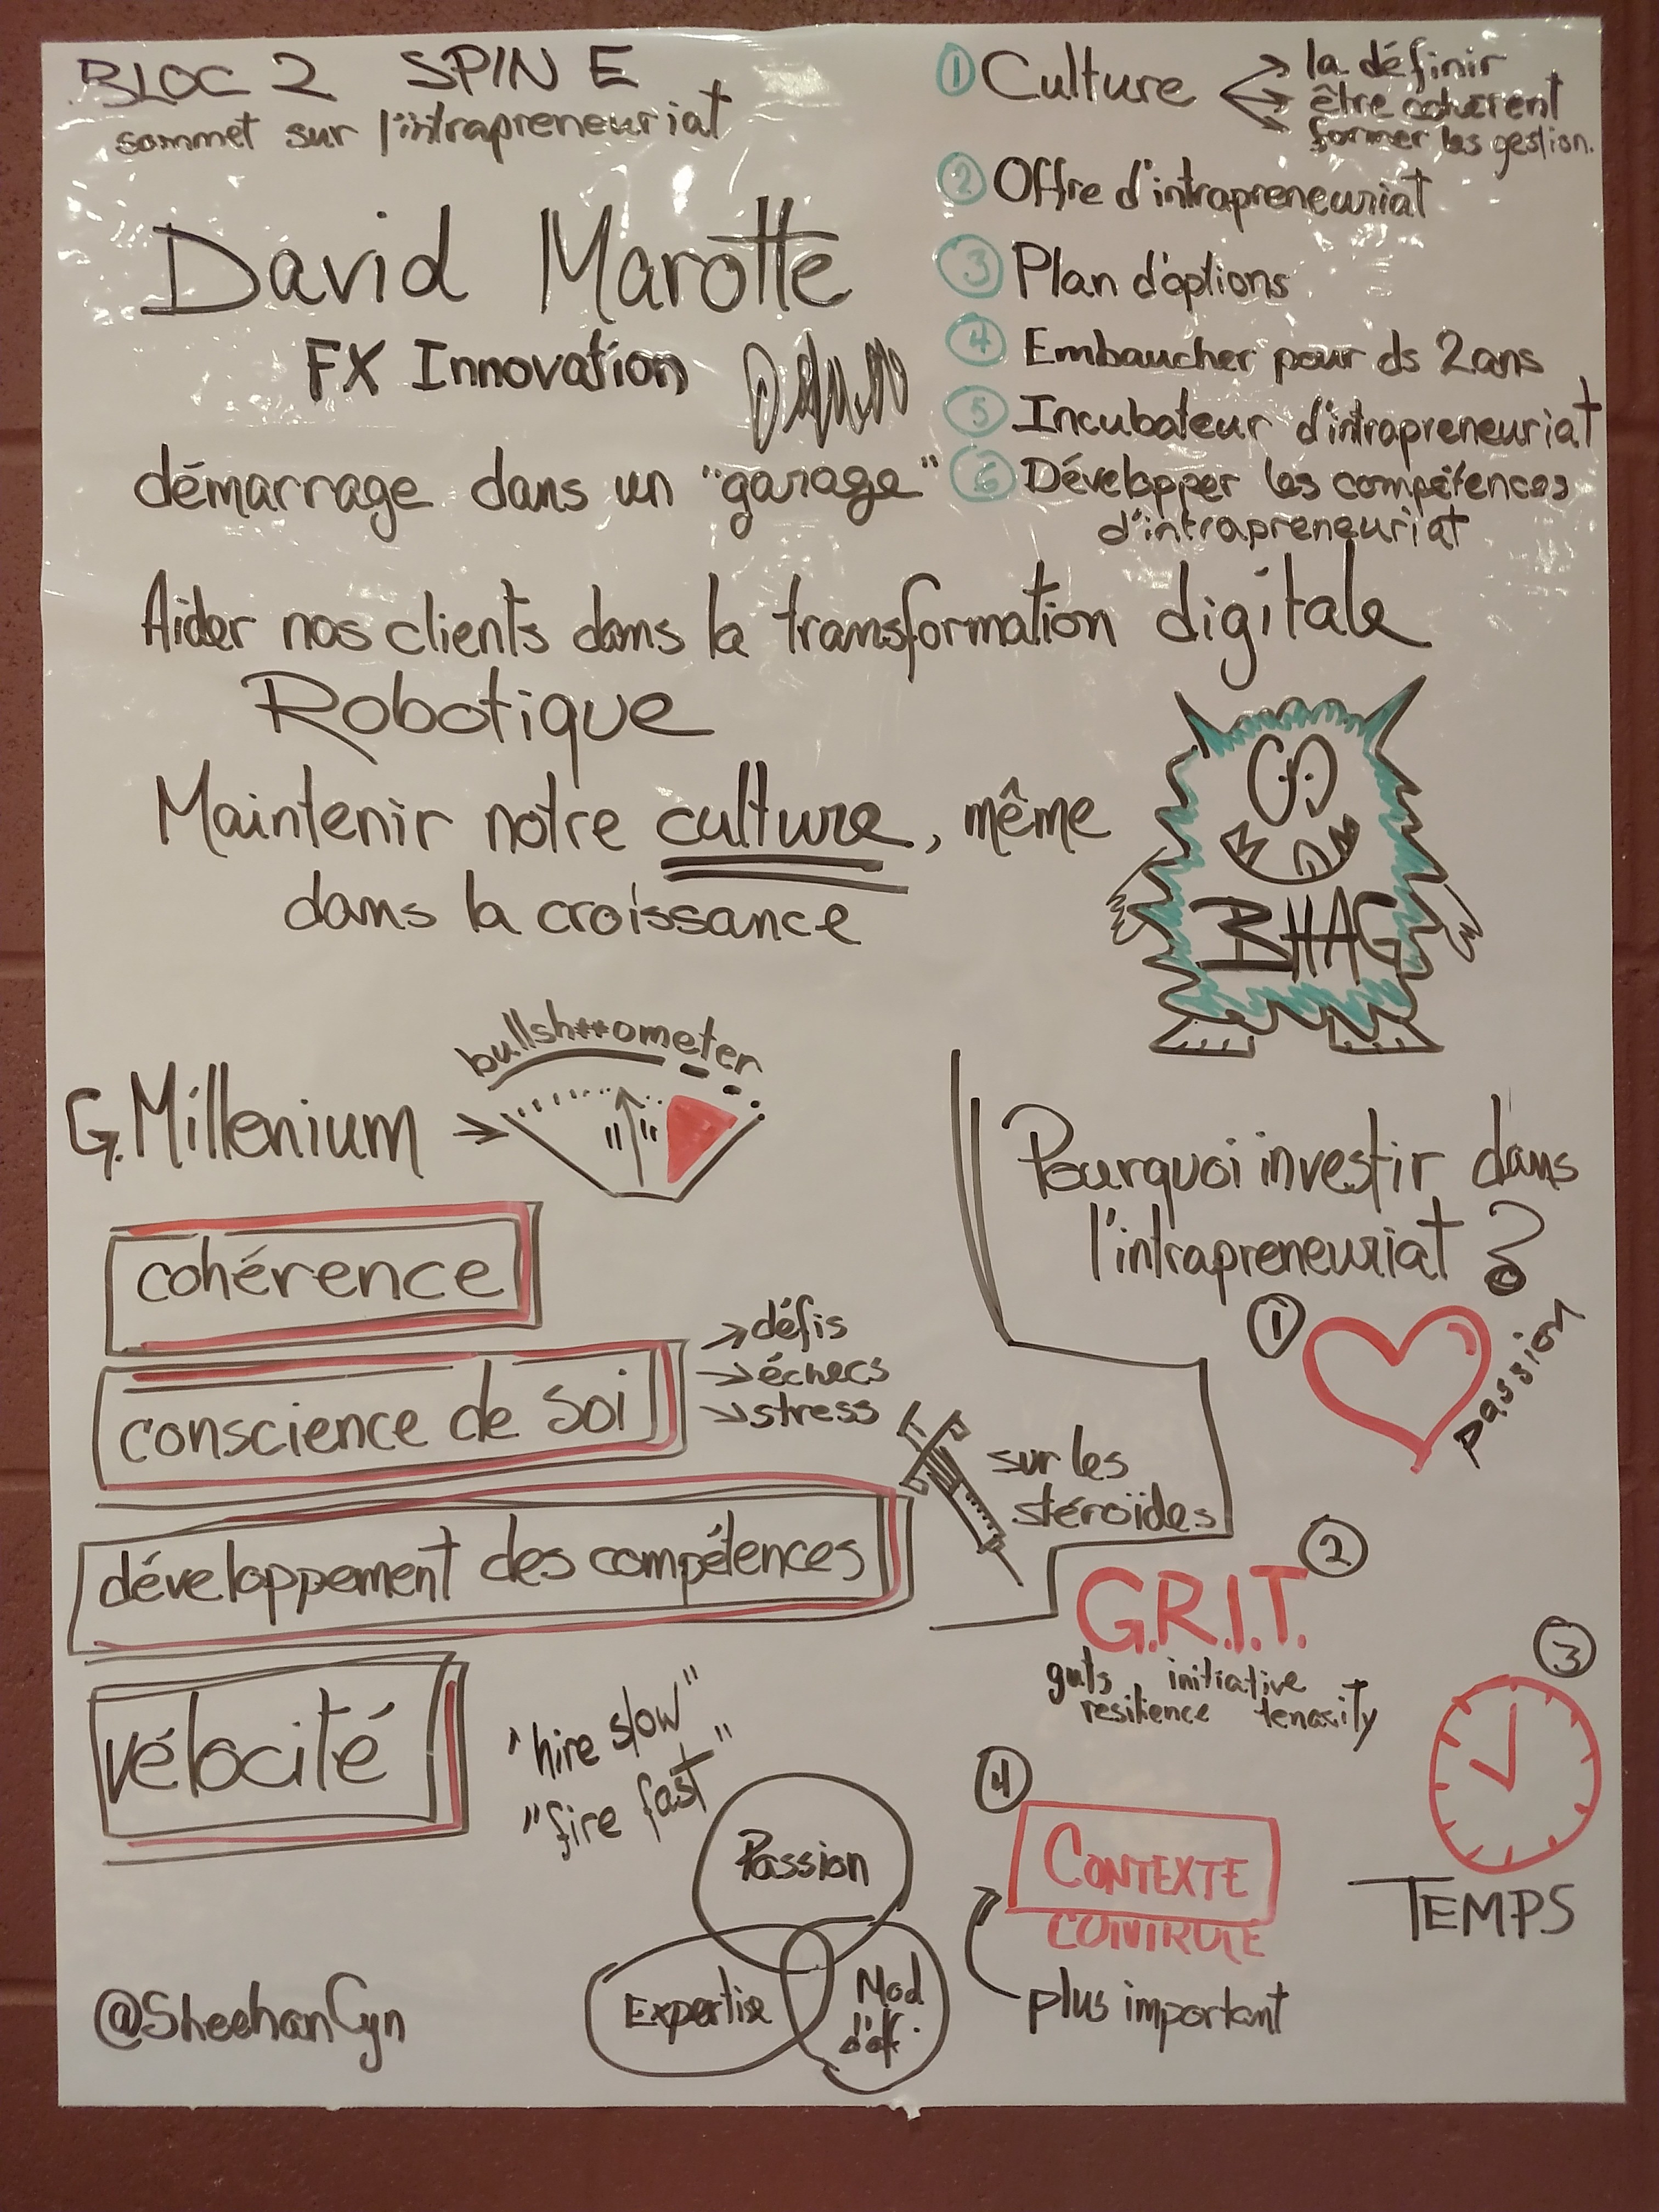 BLOC 2 SPIN E
sommet sur l'intrapreneuriat
David Marotte
FX Innovation
démarrage dans un "garage"
① Culture
la définir
être cohérent
former les gestion.
② Offre d'intrapreneuriat
③ Plan d'options
④ Embaucher pour ds 2 ans
⑤ Incubateur d'intrapreneuriat
⑥ Développer les compétences
d'intrapreneuriat
Aider nos clients dans la transformation digitale
Robotique
Maintenir notre culture, même
dans la croissance
BHAG
bullsh**ometer
G.Millenium
cohérence
conscience de soi
défis
échecs
stress
développement des compétences
sur les
stéroïdes
vélocité
"hire slow"
"fire fast"
Passion
Expertise
Mod
d'aff.
@SheehanCyn
Pourquoi investir dans
l'intrapreneuriat ?
①
passion
②
G.R.I.T.
guts initiative
resilience tenacity
③
TEMPS
④
CONTEXTE
CONTROLE
plus important